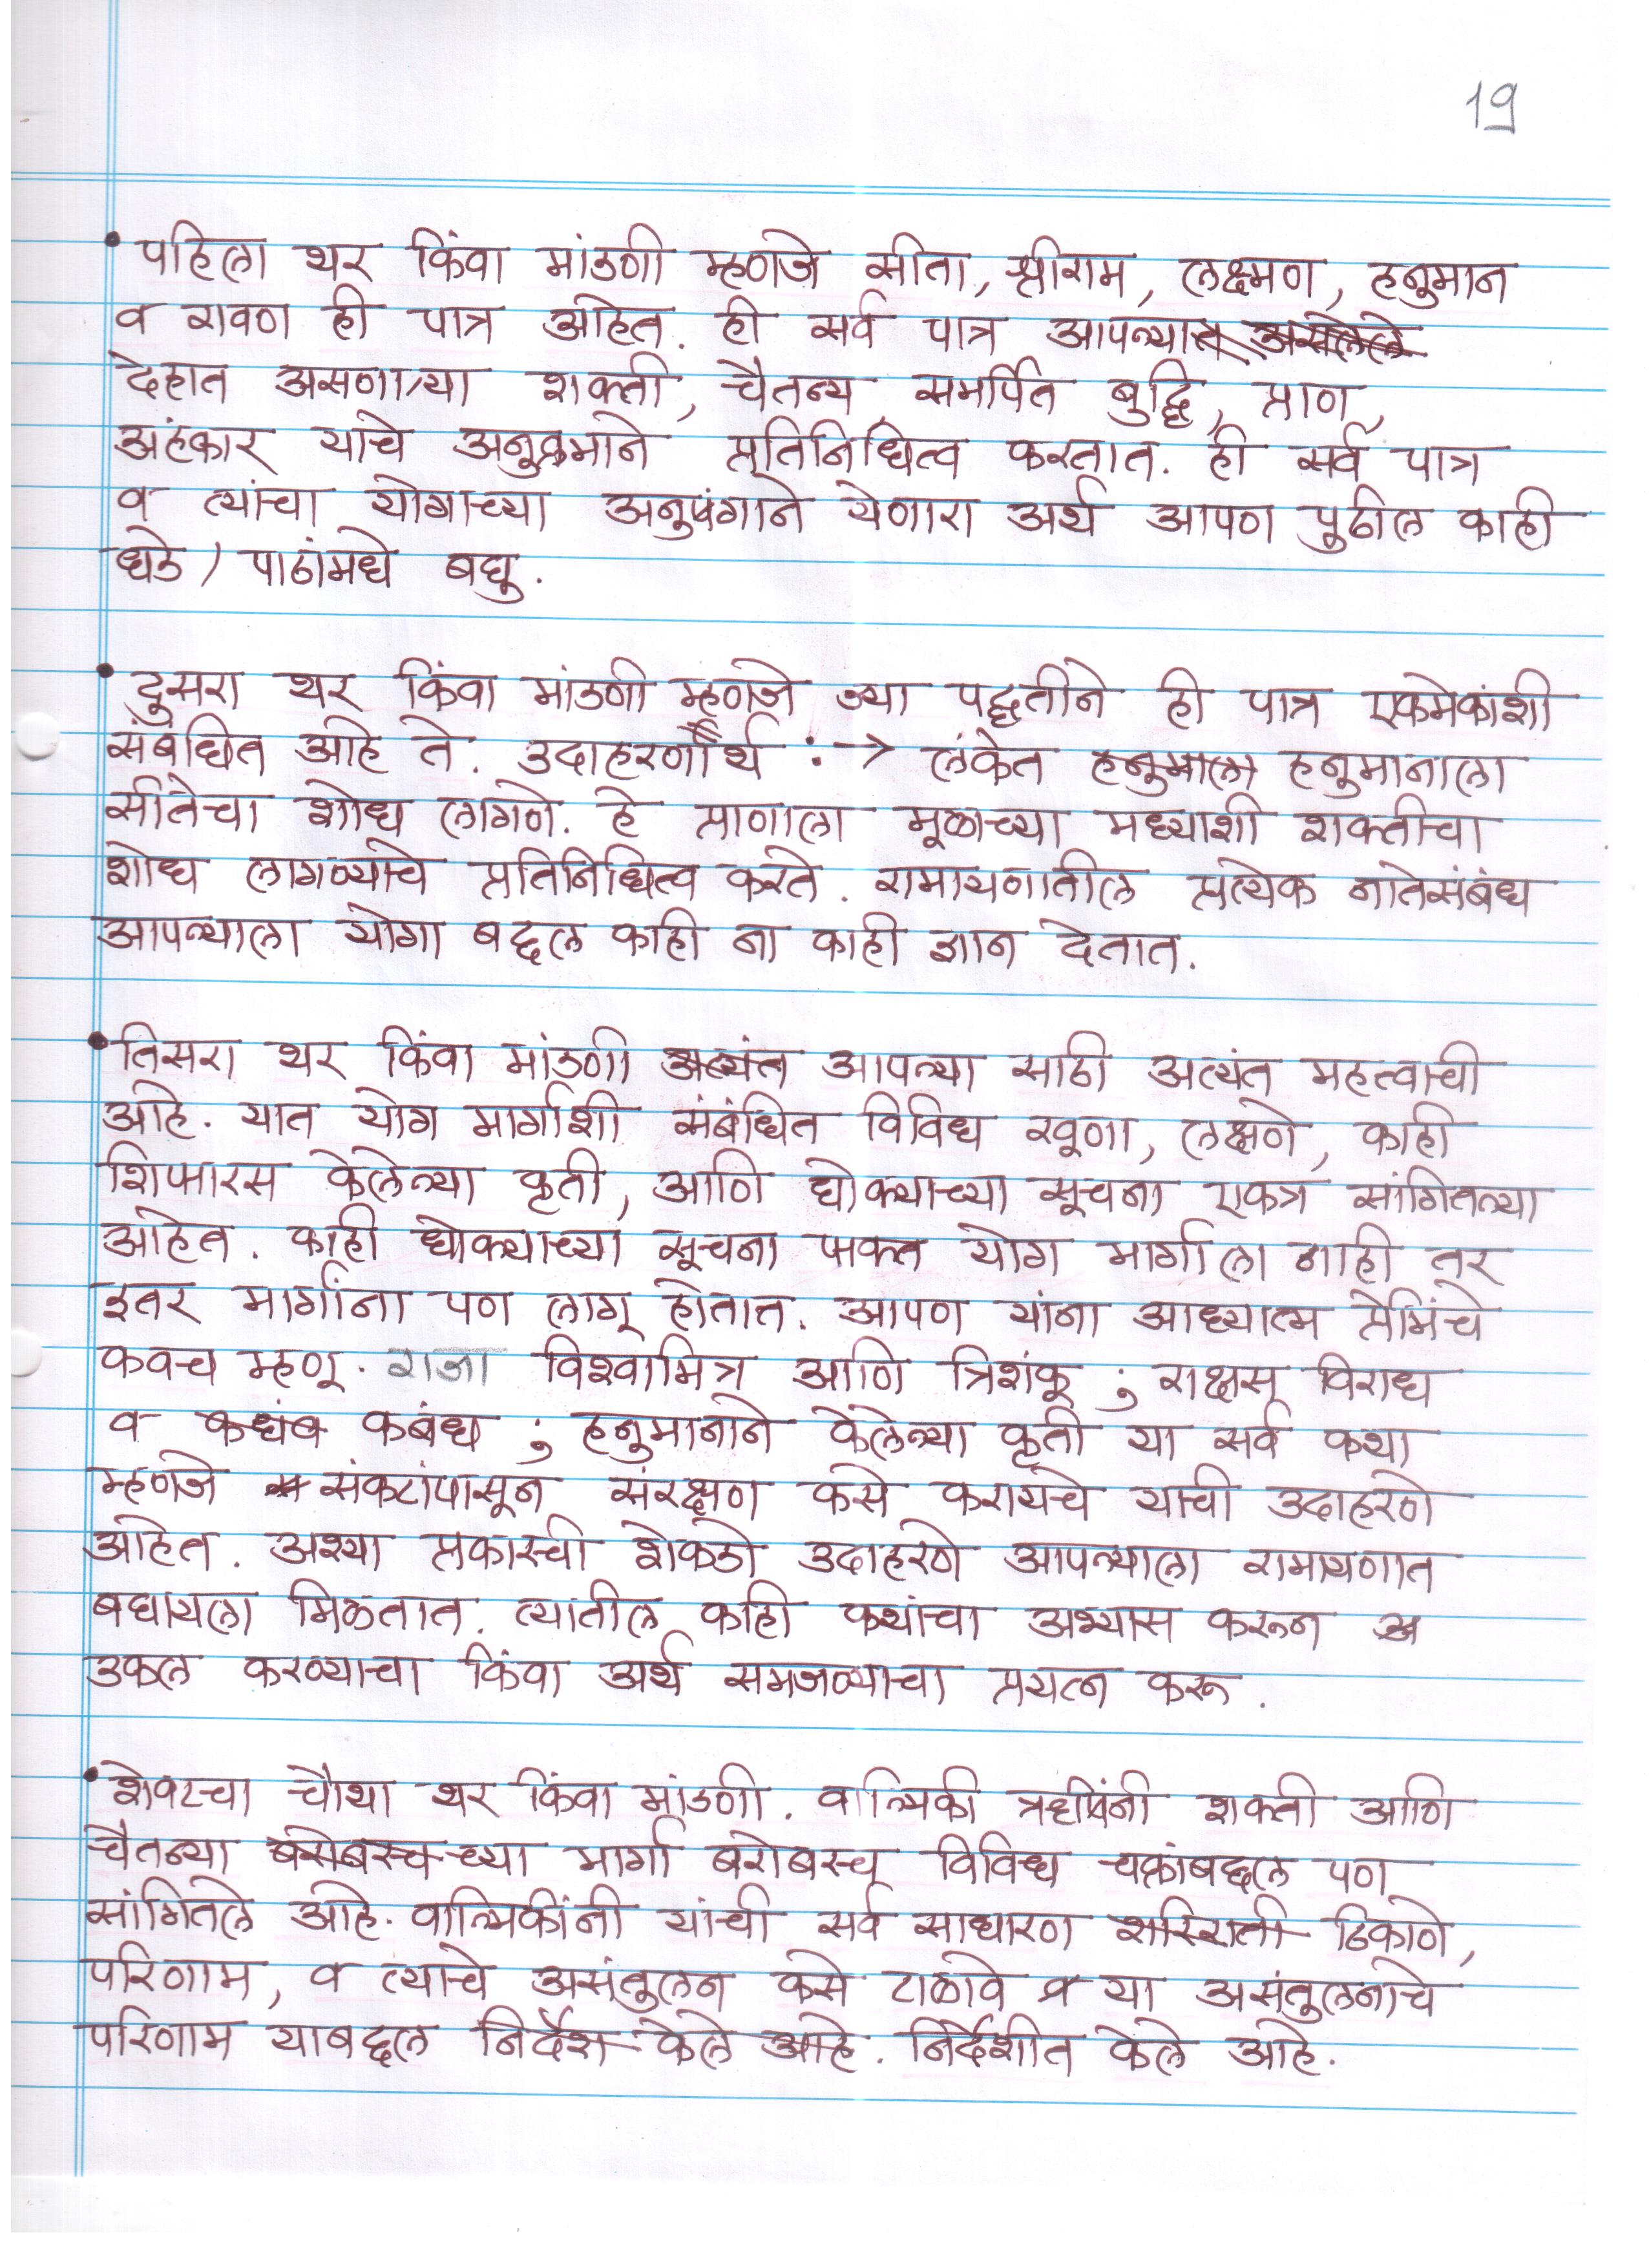 19
• पहिला थर किंवा मांडणी म्हणजे सीता, श्रीराम, लक्ष्मण, हनुमान
व रावण ही पात्र आहेत. ही सर्व पात्र आपल्यात असलेले
देहात असणाऱ्या शक्ती, चैतन्य, समर्पित बुद्धि, प्राण,
अहंकार यांचे अनुक्रमाने प्रतिनिधित्व करतात. ही सर्व पात्र
व त्यांचा योगाच्या अनुषंगाने येणारा अर्थ आपण पुढील काही
धडे / पाठांमधे बघु.
• दुसरा थर किंवा मांडणी म्हणजे ज्या पद्धतीने ही पात्र एकमेकांशी
संबंधित आहे ते. उदाहरणार्थ :→ लंकेत हनुमाला हनुमानाला
सीतेचा शोध लागणे. हे प्राणाला मूळाच्या मध्याशी शक्तीचा
शोध लागण्याचे प्रतिनिधित्व करते. रामायणातील प्रत्येक नातेसंबंध
आपल्याला योगा बद्दल काही ना काही ज्ञान देतात.
• तिसरा थर किंवा मांडणी अत्यंत आपल्या साठी अत्यंत महत्वाची
आहे. यात योग मार्गाशी संबंधित विविध खूणा, लक्षणे, काही
शिफारस केलेल्या कृती, आणि धोक्याच्या सूचना एकत्र सांगितल्या
आहेत. काही धोक्याच्या सूचना फक्त योग मार्गाला नाही तर
इतर मार्गांना पण लागू होतात. आपण यांना आध्यात्म प्रेमिंचे
कवच म्हणू. राजा विश्वामित्र आणि त्रिशंकू ; राक्षस विराध
व कधंब कबंध ; हनुमानाने केलेल्या कृती या सर्व कथा
म्हणजे संकटांपासून संरक्षण कसे करायचे याची उदाहरणे
आहेत. अश्या प्रकारची शेकडो उदाहरणे आपल्याला रामायणात
बघायला मिळतात. त्यातील काही कथांचा अभ्यास करून
उकल करण्याचा किंवा अर्थ समजण्याचा प्रयत्न करू.
• शेवटचा चौथा थर किंवा मांडणी. वाल्मिकी ऋषिंनी शक्ती आणि
चैतन्या बरोबरच च्या मार्गा बरोबरच विविध चक्रांबद्दल पण
सांगितले आहे. वाल्मिकींनी यांची सर्व साधारण शरिराती ठिकाणे,
परिणाम, व त्याचे असंतुलन कसे टाळावे व या असंतुलनाचे
परिणाम याबद्दल निर्देश केले आहे. निर्देशीत केले आहे.